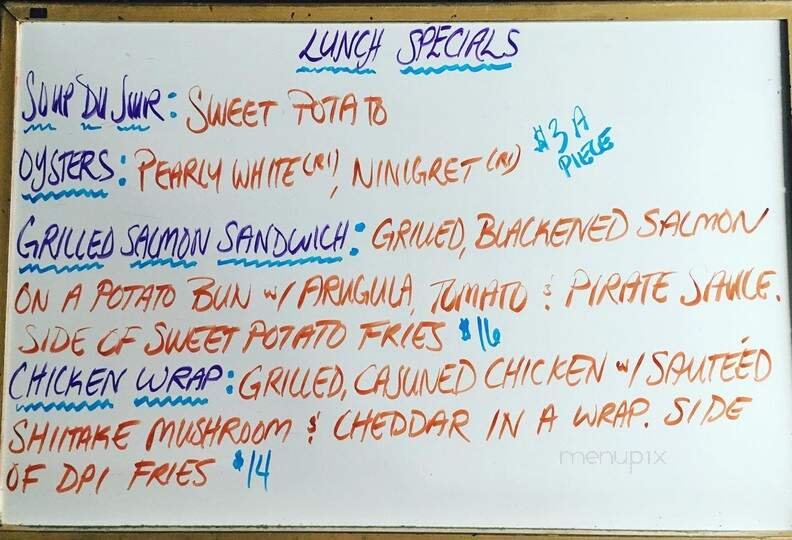 LUNCH SPECIALS
SOUP DU JOUR: SWEET POTATO
OYSTERS: PEARLY WHITE (RI), NINIGRET (RI) $3 A PIECE
GRILLED SALMON SANDWICH: GRILLED, BLACKENED SALMON
ON A POTATO BUN W/ ARUGULA, TOMATO & PIRATE SAUCE.
SIDE OF SWEET POTATO FRIES $16
CHICKEN WRAP: GRILLED, CAJUNED CHICKEN W/ SAUTÉED
SHIITAKE MUSHROOM & CHEDDAR IN A WRAP. SIDE
OF DPI FRIES $14
menupix